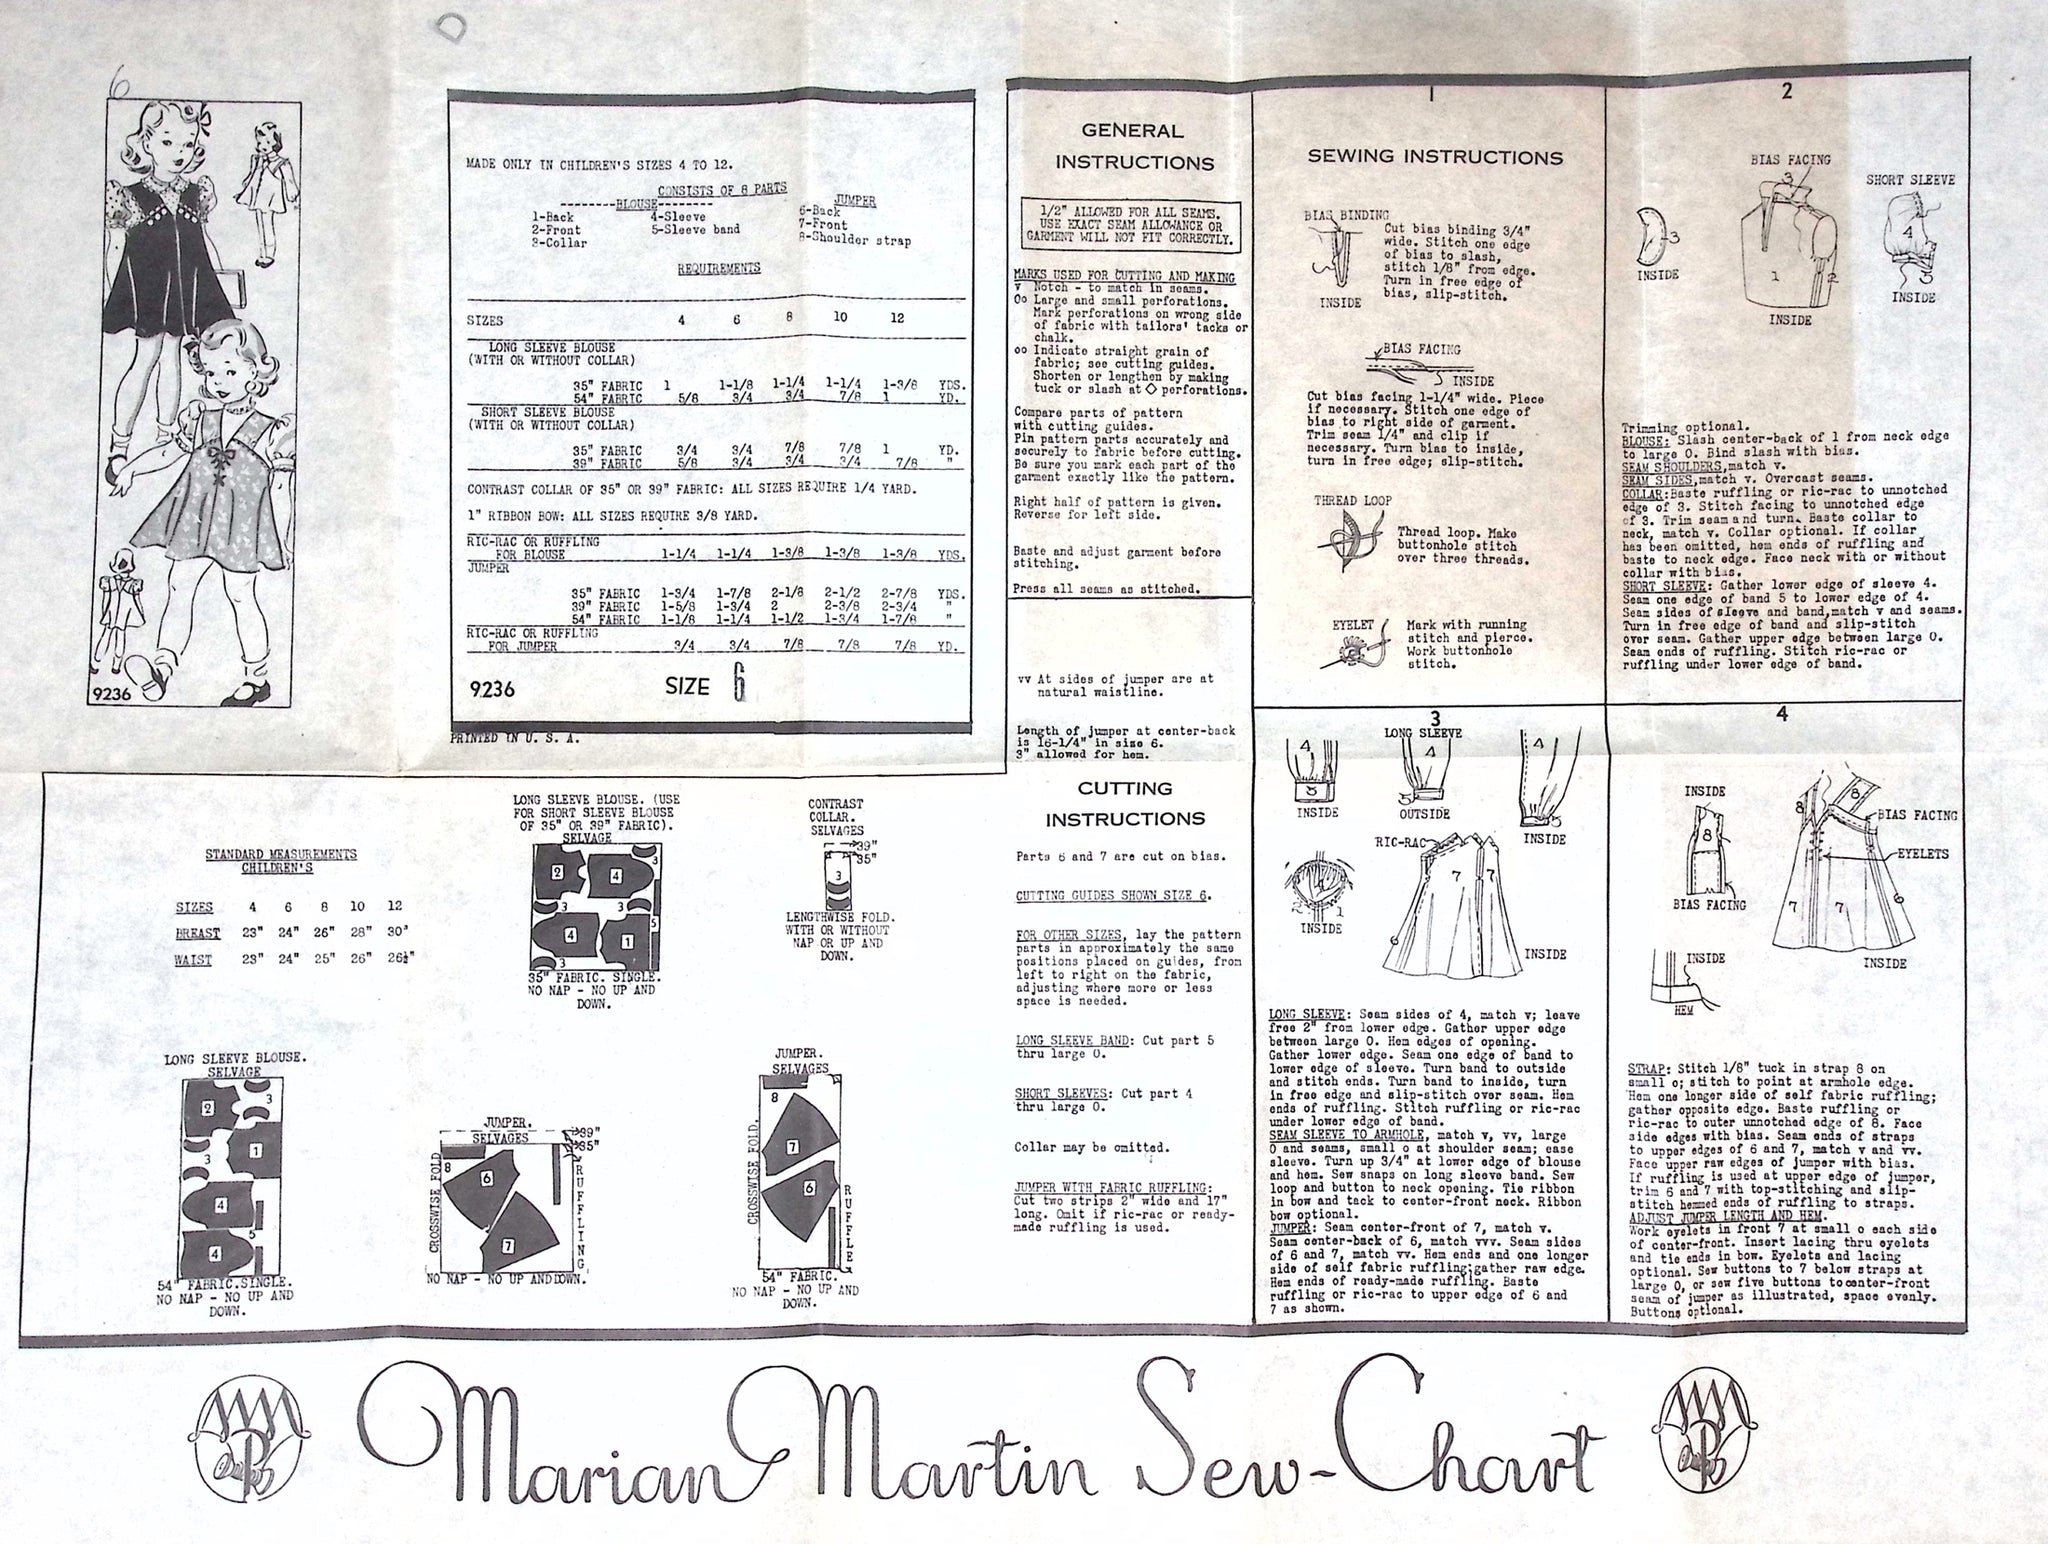 6
9236
MADE ONLY IN CHILDREN'S SIZES 4 TO 12.
CONSISTS OF 8 PARTS
--------BLOUSE--------
JUMPER
1-Back 4-Sleeve 6-Back
2-Front 5-Sleeve band 7-Front
3-Collar 8-Shoulder strap
REQUIREMENTS
SIZES 4 6 8 10 12
LONG SLEEVE BLOUSE
(WITH OR WITHOUT COLLAR)
35" FABRIC 1 1-1/8 1-1/4 1-1/4 1-3/8 YDS.
54" FABRIC 5/8 3/4 3/4 7/8 1 YD.
SHORT SLEEVE BLOUSE
(WITH OR WITHOUT COLLAR)
35" FABRIC 3/4 3/4 7/8 7/8 1 YD.
39" FABRIC 5/8 3/4 3/4 3/4 7/8 "
CONTRAST COLLAR OF 35" OR 39" FABRIC: ALL SIZES REQUIRE 1/4 YARD.
1" RIBBON BOW: ALL SIZES REQUIRE 3/8 YARD.
RIC-RAC OR RUFFLING
FOR BLOUSE 1-1/4 1-1/4 1-3/8 1-3/8 1-3/8 YDS.
JUMPER
35" FABRIC 1-3/4 1-7/8 2-1/8 2-1/2 2-7/8 YDS.
39" FABRIC 1-5/8 1-3/4 2 2-3/8 2-3/4 "
54" FABRIC 1-1/8 1-1/4 1-1/2 1-3/4 1-7/8 "
RIC-RAC OR RUFFLING
FOR JUMPER 3/4 3/4 7/8 7/8 7/8 YD.
9236 SIZE 6
PRINTED IN U. S. A.
GENERAL
INSTRUCTIONS
1/2" ALLOWED FOR ALL SEAMS.
USE EXACT SEAM ALLOWANCE OR
GARMENT WILL NOT FIT CORRECTLY.
MARKS USED FOR CUTTING AND MAKING
v Notch - to match in seams.
Oo Large and small perforations.
Mark perforations on wrong side
of fabric with tailors' tacks or
chalk.
oo Indicate straight grain of
fabric; see cutting guides.
Shorten or lengthen by making
tuck or slash at ◇ perforations.
Compare parts of pattern
with cutting guides.
Pin pattern parts accurately and
securely to fabric before cutting.
Be sure you mark each part of the
garment exactly like the pattern.
Right half of pattern is given.
Reverse for left side.
Baste and adjust garment before
stitching.
Press all seams as stitched.
vv At sides of jumper are at
natural waistline.
Length of jumper at center-back
is 16-1/4" in size 6.
3" allowed for hem.
CUTTING
INSTRUCTIONS
Parts 6 and 7 are cut on bias.
CUTTING GUIDES SHOWN SIZE 6.
FOR OTHER SIZES, lay the pattern
parts in approximately the same
positions placed on guides, from
left to right on the fabric,
adjusting where more or less
space is needed.
LONG SLEEVE BAND: Cut part 5
thru large O.
SHORT SLEEVES: Cut part 4
thru large O.
Collar may be omitted.
JUMPER WITH FABRIC RUFFLING:
Cut two strips 2" wide and 17"
long. Omit if ric-rac or ready-
made ruffling is used.
1
SEWING INSTRUCTIONS
BIAS BINDING
INSIDE
Cut bias binding 3/4"
wide. Stitch one edge
of bias to slash,
stitch 1/8" from edge.
Turn in free edge of
bias, slip-stitch.
BIAS FACING
INSIDE
Cut bias facing 1-1/4" wide. Piece
if necessary. Stitch one edge of
bias to right side of garment.
Trim seam 1/4" and clip if
necessary. Turn bias to inside,
turn in free edge; slip-stitch.
THREAD LOOP
Thread loop. Make
buttonhole stitch
over three threads.
EYELET
Mark with running
stitch and pierce.
Work buttonhole
stitch.
2
BIAS FACING
SHORT SLEEVE
3
3
4
1
2
5
INSIDE
INSIDE
INSIDE
Trimming optional.
BLOUSE: Slash center-back of 1 from neck edge
to large O. Bind slash with bias.
SEAM SHOULDERS, match v.
SEAM SIDES, match v. Overcast seams.
COLLAR: Baste ruffling or ric-rac to unnotched
edge of 3. Stitch facing to unnotched edge
of 3. Trim seam and turn. Baste collar to
neck, match v. Collar optional. If collar
has been omitted, hem ends of ruffling and
baste to neck edge. Face neck with or without
collar with bias.
SHORT SLEEVE: Gather lower edge of sleeve 4.
Seam one edge of band 5 to lower edge of 4.
Seam sides of sleeve and band, match v and seams.
Turn in free edge of band and slip-stitch
over seam. Gather upper edge between large O.
Seam ends of ruffling. Stitch ric-rac or
ruffling under lower edge of band.
3
LONG SLEEVE
4 4 4
5
5
INSIDE
OUTSIDE
INSIDE
RIC-RAC
7 7
2 1
6
INSIDE
INSIDE
LONG SLEEVE: Seam sides of 4, match v; leave
free 2" from lower edge. Gather upper edge
between large O. Hem edges of opening.
Gather lower edge. Seam one edge of band to
lower edge of sleeve. Turn band to outside
and stitch ends. Turn band to inside, turn
in free edge and slip-stitch over seam. Hem
ends of ruffling. Stitch ruffling or ric-rac
under lower edge of band.
SEAM SLEEVE TO ARMHOLE, match v, vv, large
O and seams, small o at shoulder seam; ease
sleeve. Turn up 3/4" at lower edge of blouse
and hem. Sew snaps on long sleeve band. Sew
loop and button to neck opening. Tie ribbon
in bow and tack to center-front neck. Ribbon
bow optional.
JUMPER: Seam center-front of 7, match v.
Seam center-back of 6, match vvv. Seam sides
of 6 and 7, match vv. Hem ends and one longer
side of self fabric ruffling; gather raw edge.
Hem ends of ready-made ruffling. Baste
ruffling or ric-rac to upper edge of 6 and
7 as shown.
4
INSIDE
8
BIAS FACING
8 8
BIAS FACING
EYELETS
7 7
6
INSIDE
INSIDE
HEM
STRAP: Stitch 1/8" tuck in strap 8 on
small o; stitch to point at armhole edge.
Hem one longer side of self fabric ruffling;
gather opposite edge. Baste ruffling or
ric-rac to outer unnotched edge of 8. Face
side edges with bias. Seam ends of straps
to upper edges of 6 and 7, match v and vv.
Face upper raw edges of jumper with bias.
If ruffling is used at upper edge of jumper,
trim 6 and 7 with top-stitching and slip-
stitch hemmed ends of ruffling to straps.
ADJUST JUMPER LENGTH AND HEM.
Work eyelets in front 7 at small o each side
of center-front. Insert lacing thru eyelets
and tie ends in bow. Eyelets and lacing
optional. Sew buttons to 7 below straps at
large O, or sew five buttons to center-front
seam of jumper as illustrated, space evenly.
Buttons optional.
STANDARD MEASUREMENTS
CHILDREN'S
SIZES 4 6 8 10 12
BREAST 23" 24" 26" 28" 30"
WAIST 23" 24" 25" 26" 26½"
LONG SLEEVE BLOUSE. (USE
FOR SHORT SLEEVE BLOUSE
OF 35" OR 39" FABRIC).
SELVAGE
2 4 3
3 3
4 1 5
3
35" FABRIC. SINGLE.
NO NAP - NO UP AND
DOWN.
CONTRAST
COLLAR.
SELVAGES
39"
35"
3
LENGTHWISE FOLD.
WITH OR WITHOUT
NAP OR UP AND
DOWN.
LONG SLEEVE BLOUSE.
SELVAGE
2 3
1
3
4
5
4
54" FABRIC. SINGLE.
NO NAP - NO UP AND
DOWN.
JUMPER.
SELVAGES
39"
35"
CROSSWISE FOLD
8
6
7
RUFFLING
NO NAP - NO UP AND DOWN.
JUMPER.
SELVAGES
CROSSWISE FOLD.
8
7
6
RUFFLE
54" FABRIC.
NO NAP - NO UP AND
DOWN.
Marian Martin Sew-Chart